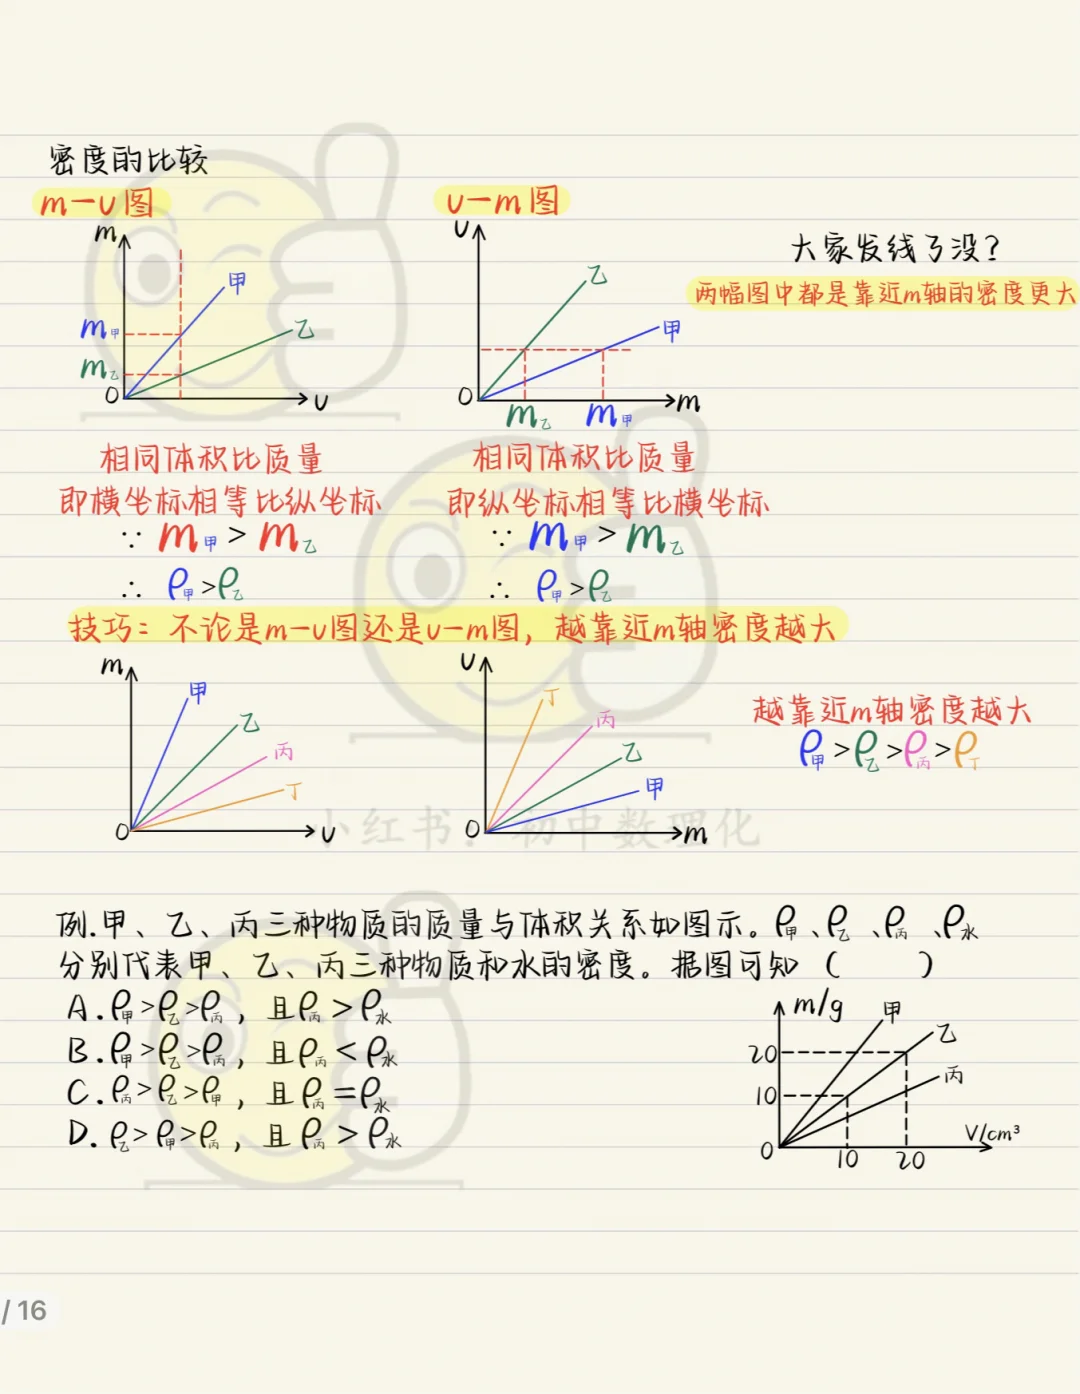 密度的比较
m-v图
v-m图
m
甲
乙
m甲
m乙
0
v
v
乙
甲
0
m乙
m甲
m
大家发线了没?
两幅图中都是靠近m轴的密度更大
相同体积比质量
即横坐标相等比纵坐标
∵ m甲>m乙
∴ ρ甲>ρ乙
相同体积比质量
即纵坐标相等比横坐标
∵ m甲>m乙
∴ ρ甲>ρ乙
技巧:不论是m-v图还是v-m图,越靠近m轴密度越大
m
甲
乙
丙
丁
0
v
v
丁
丙
乙
甲
0
m
越靠近m轴密度越大
ρ甲>ρ乙>ρ丙>ρ丁
小红书:初中数理化
例.甲、乙、丙三种物质的质量与体积关系如图示。ρ甲、ρ乙、ρ丙、ρ水
分别代表甲、乙、丙三种物质和水的密度。据图可知( )
A.ρ甲>ρ乙>ρ丙,且ρ丙>ρ水
B.ρ甲>ρ乙>ρ丙,且ρ丙<ρ水
C.ρ丙>ρ乙>ρ甲,且ρ丙=ρ水
D.ρ乙>ρ甲>ρ丙,且ρ丙>ρ水
m/g
甲
乙
丙
20
10
0
10
20
V/cm³
/ 16